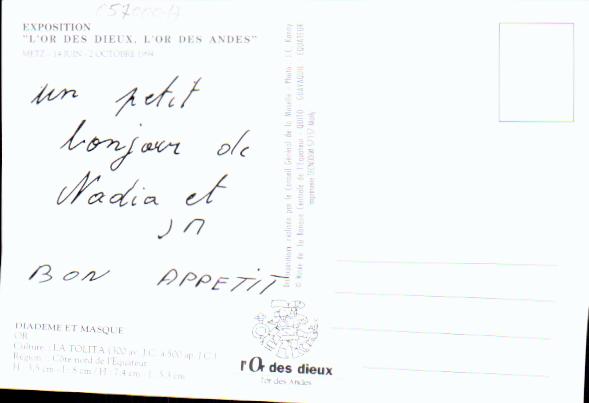 EXPOSITION
"L'OR DES DIEUX, L'OR DES ANDES"
METZ - 14 JUIN - 2 OCTOBRE 1994
un petit
bonjour de
Nadia et
JM
BON APPETIT
DIADEME ET MASQUE
OR
Culture : LA TOLITA (300 av. J.C. à 500 ap. J.C.)
Région : Côte nord de l'Equateur
H : 3,8 cm - L : 8 cm / H : 7,4 cm - L : 5,3 cm
l'Or des dieux
l'or des Andes
Exposition réalisée par le Conseil Général de la Moselle - Photo : J.C.
© Musée de la Banque Centrale de l'Equateur - QUITO - GUAYAQUIL - EQUATEUR
Imprimerie